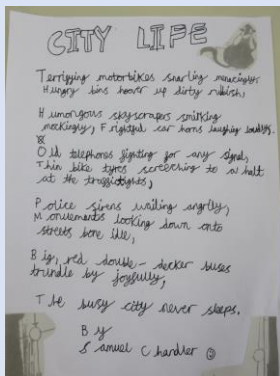 CITY LIFE
Terrifying motorbikes snarling menacingly,
Hungry bins hoover up dirty rubbish,
Humongous skyscrapers smirking
mockingly, Frightful car horns laughing loudly,
Old telephones fighting for any signal,
Thin bike tyres screeching to a halt
at the trafficlights,
Police sirens wailing angrily,
Monuements looking down onto
streets bone idle,
Big, red double-decker buses
trundle by joyfully,
The busy city never sleeps.
By
Samuel Chandler